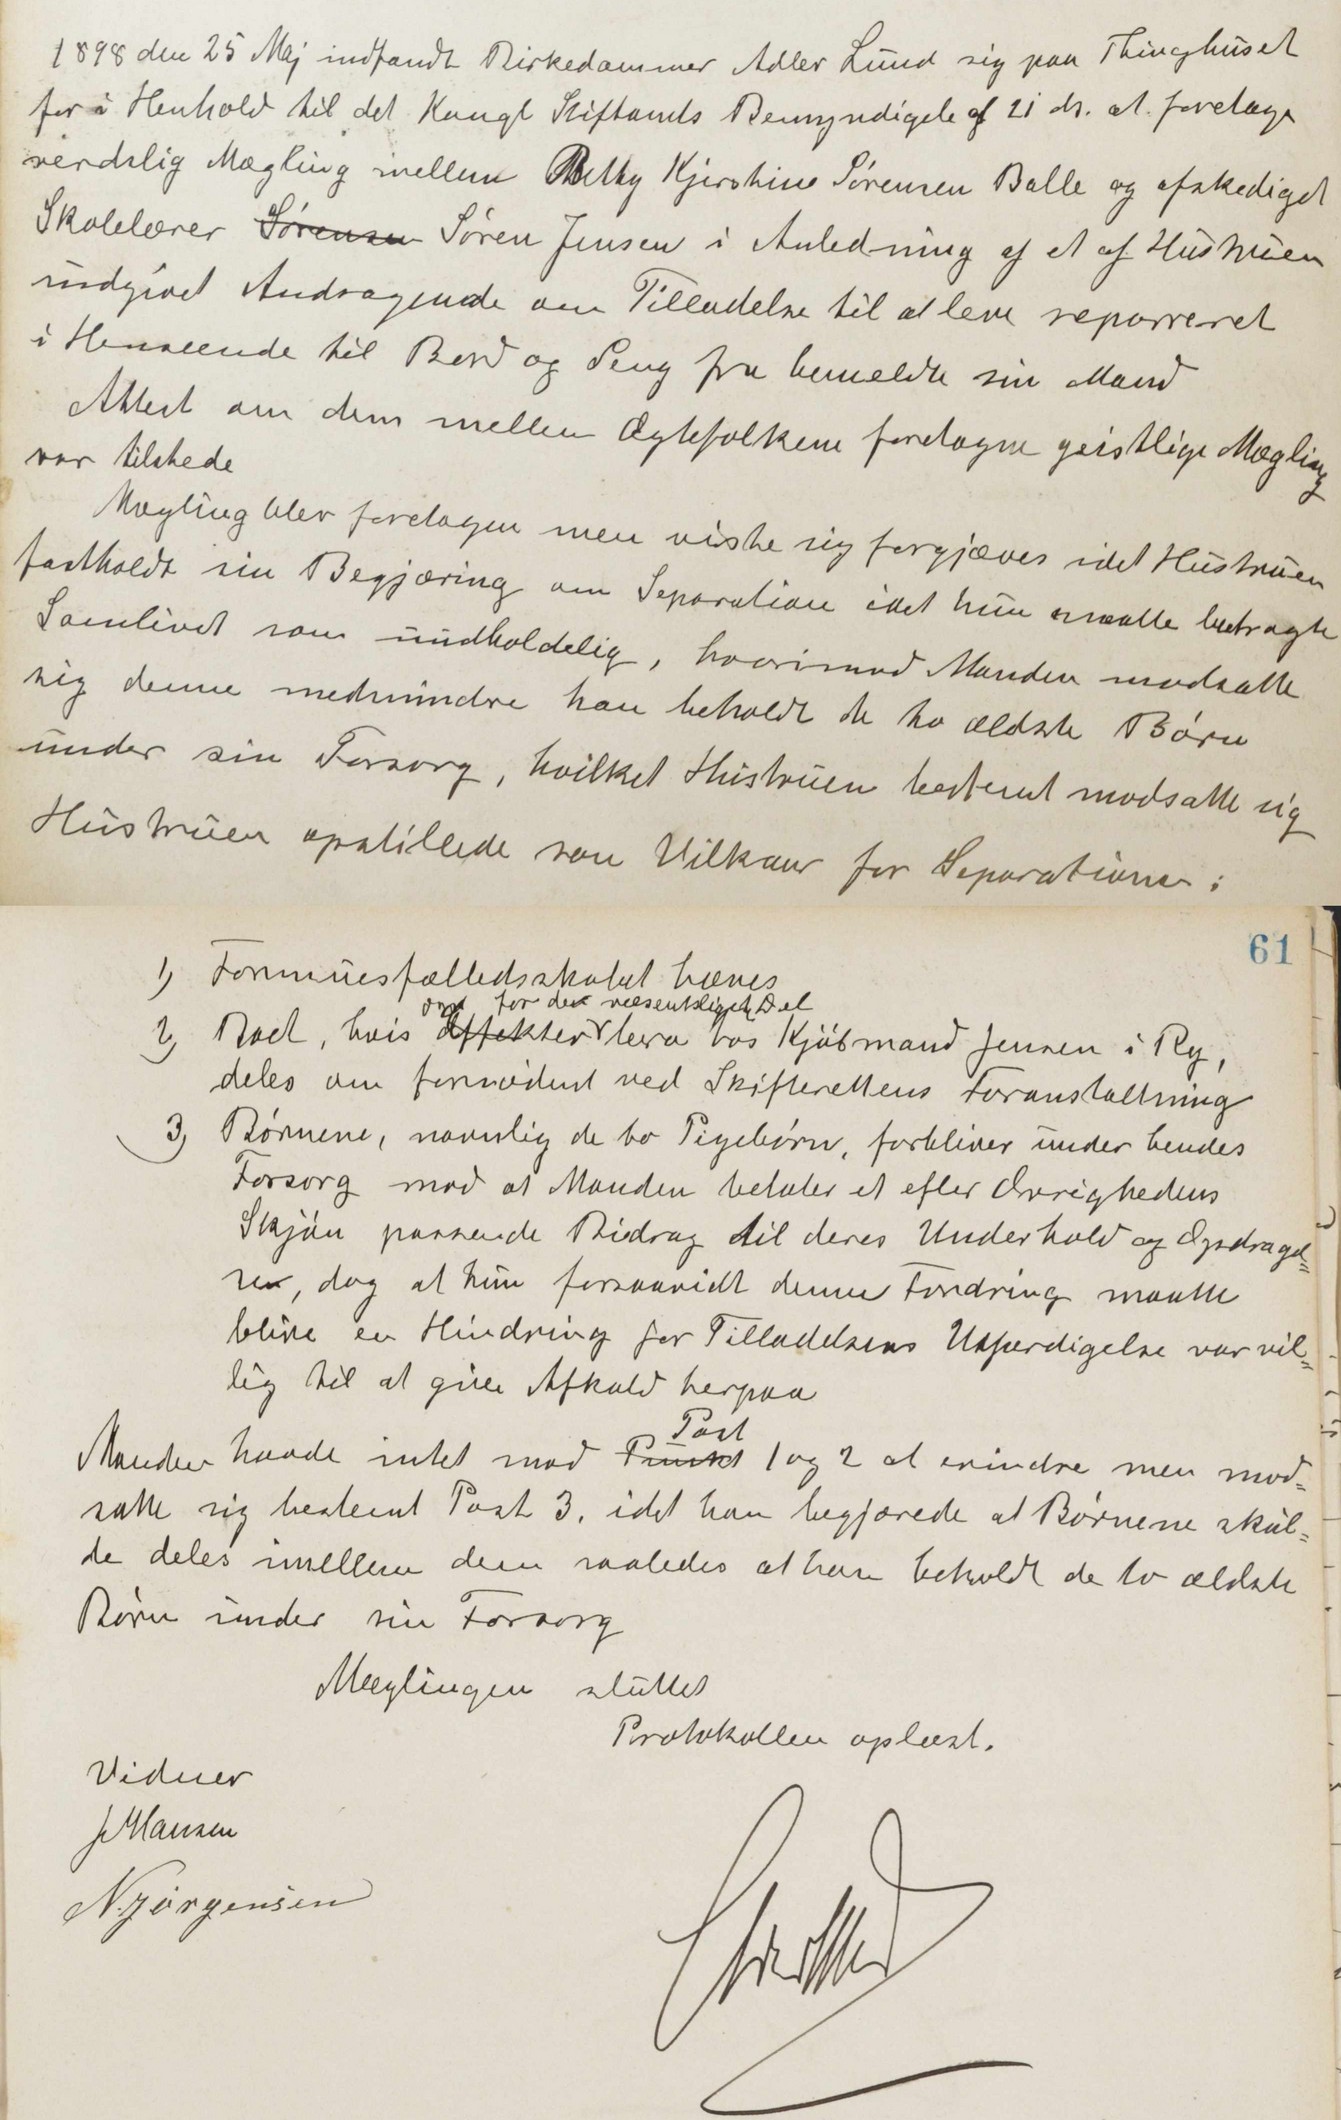 1898 den 25 Maj indfandt Birkedommer Adler Lund sig paa Thinghuset
for i Henhold til det Kongl Stiftamts Bemyndigele af 21 ds. at foretage
verdslig Mægling mellem Betty Kjerstine Sørensen Balle og afskediget
Skolelærer Sørensen Søren Jensen i Anledning af et af Hustruen
indgivet Andragende om Tilladelse til at leve separeret
i Henseende til Bord og Seng fra bemeldte sin Mand
Attest om den mellem Ægtefolkene foretagne geistlige Mægling
var tilstede
Mægling blev foretagen men viste sig forgjæves idet Hustruen
fastholdt sin Begjæring om Separation idet hun maatte betragte
Samlivet som uudholdelig, hvorimod Manden modsatte
sig denne medmindre han beholdt de to ældste Børn
under sin Forsorg, hvilket Hustruen bestemt modsatte sig
Hustruen opstillede som Vilkaar for Separationen:
61
1) Formuesfælledsskabet hæves
for den væsentligste Del
2) Boet, hvis Effekter bero hos Kjøbmand Jensen i Ry,
deles om fornødent ved Skifterettens Foranstaltning
3) Børnene, navnlig de to Pigebørn, forbliver under hendes
Forsorg mod at Manden betaler et efter Øvrighedens
Skjøn passende Bidrag til deres Underhold og Opdragel=
se, dog at hun forsaavidt denne Fordring maatte
blive en Hindring for Tilladelsens Udfærdigelse var vil=
lig til at give Afkald herpaa
Post
Manden havde intet mod Punkt 1 og 2 at erindre men mod=
satte sig bestemt Post 3, idet han begjærede at Børnene skul=
de deles imellem dem saaledes at han beholdt de to ældste
Børn under sin Forsorg
Mæglingen sluttet
Protokollen oplæst.
Vidner
J Hansen
N. Jörgensen